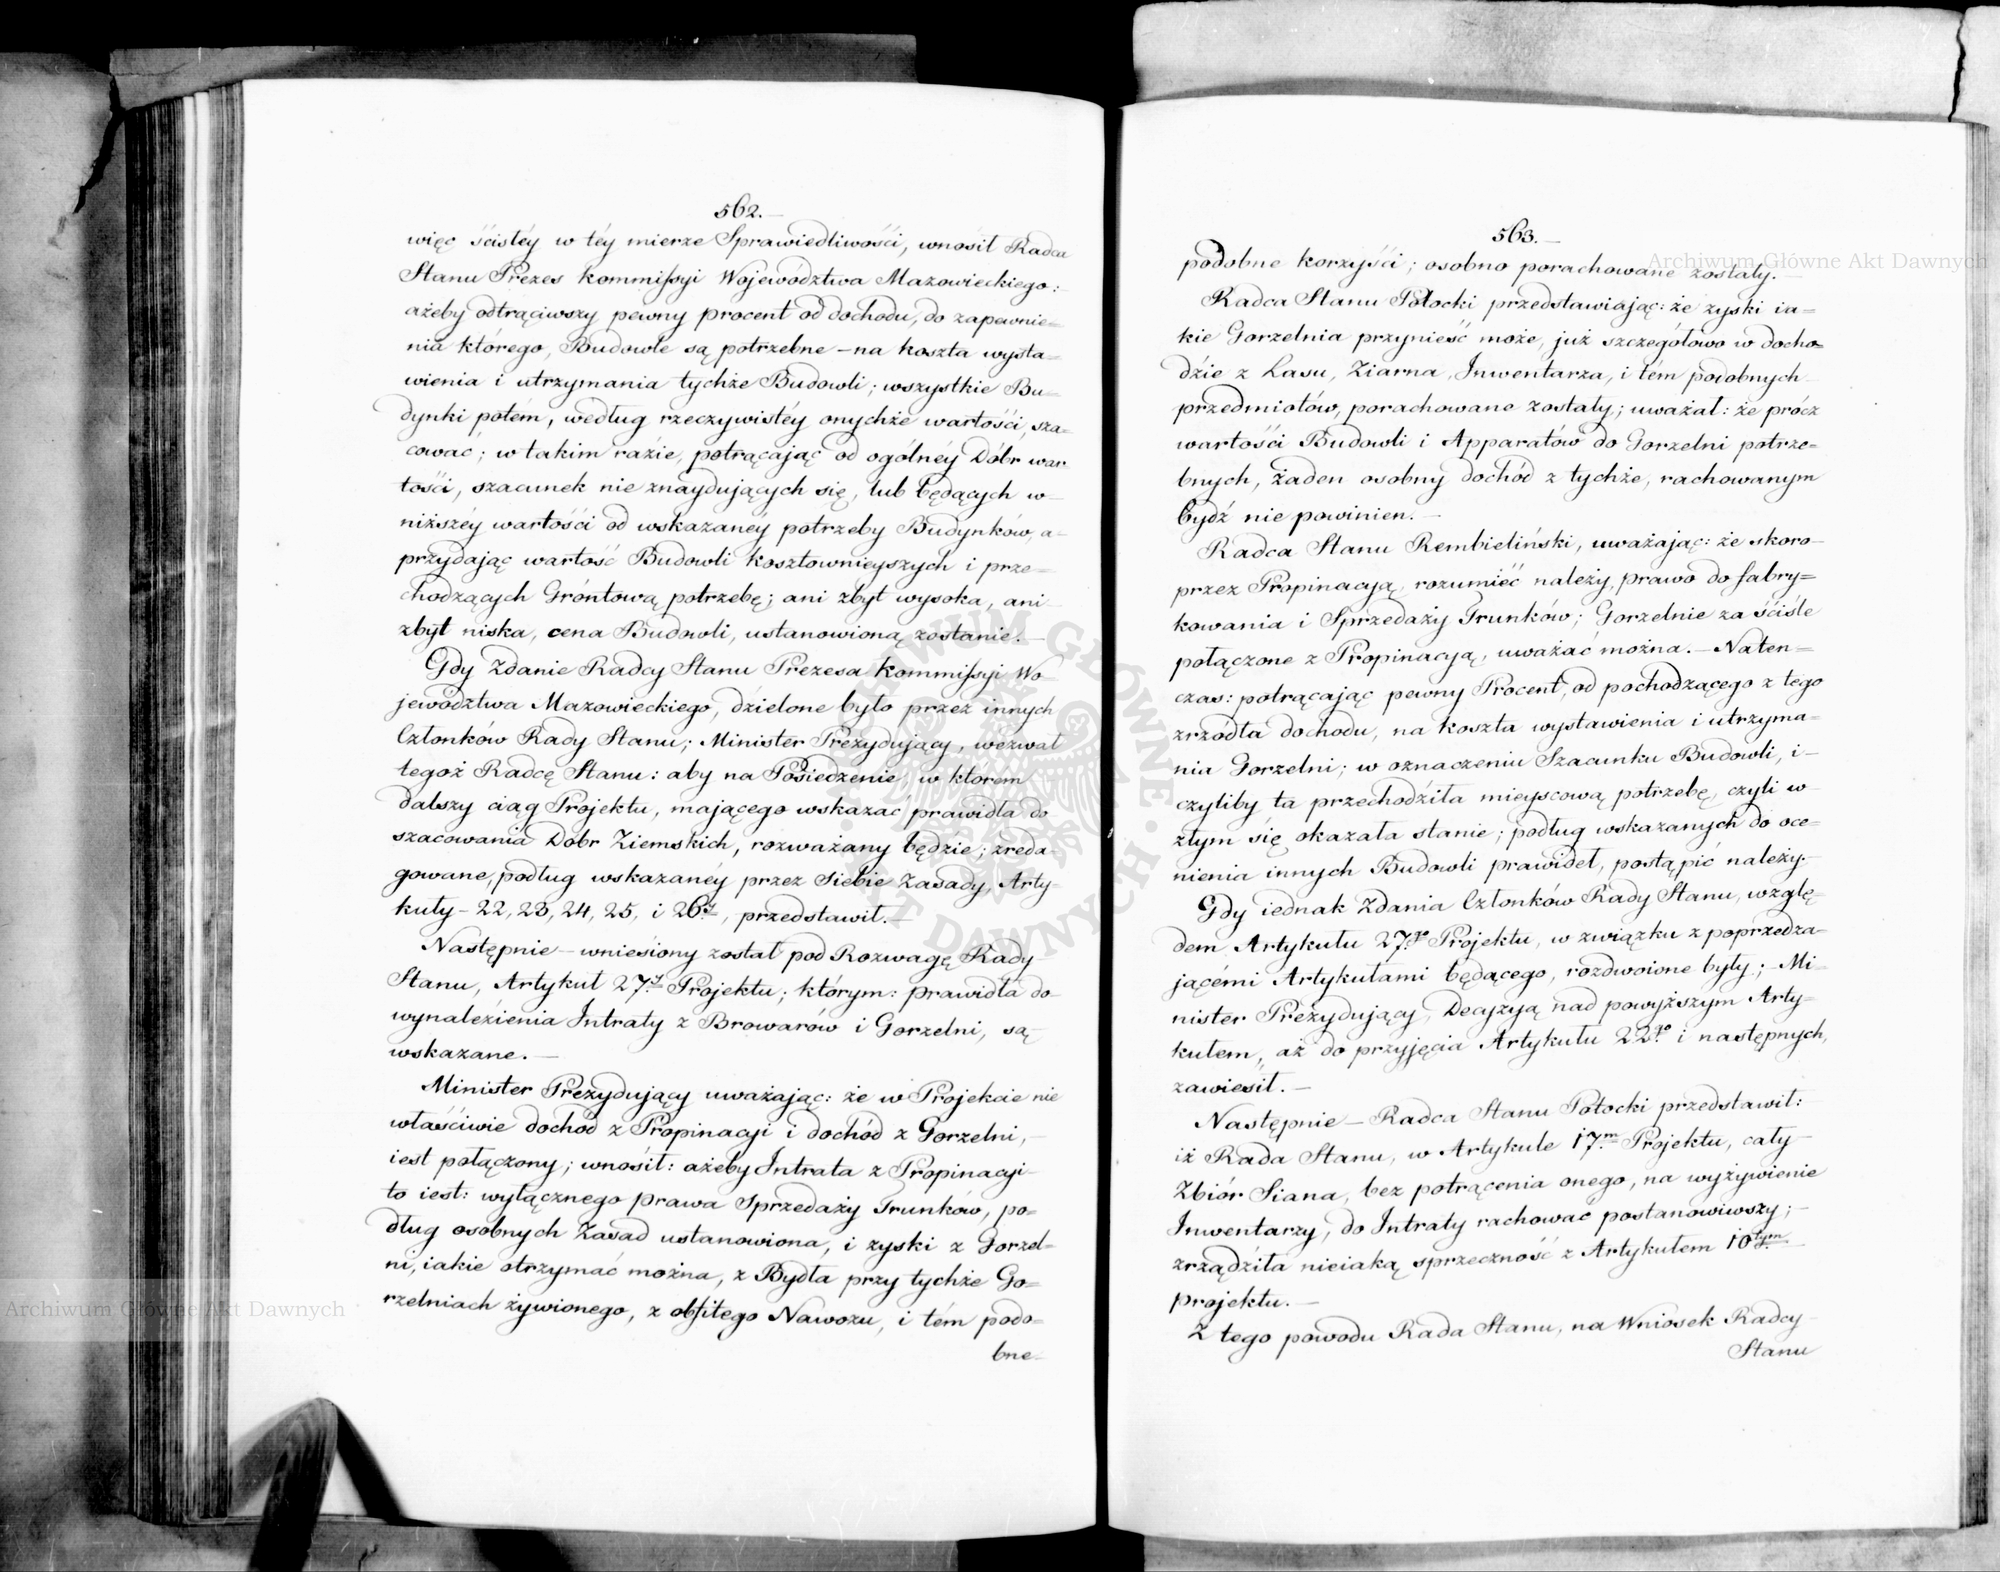 562.—
więc ścisłéy w téy mierze Sprawiedliwości, wnosił Radca
Stanu Prezes Kommissyi Województwa Mazowieckiego:
ażeby odtrąciwszy pewny procent od dochodu, do zapewnie=
nia którego, Budowle są potrzebne — na koszta wysta=
wienia i utrzymania tychże Budowli; wszystkie Bu=
dynki potém, według rzeczywistéy onychże wartości, sza=
cować; w takim razie, potrącając od ogólnéy Dóbr war=
tości, szacunek nie znaydujących się, lub będących w
niższéy wartości od wskazanéy potrzeby Budynków, a=
przydając wartość Budowli kosztownieyszych i prze=
chodzących Gróntową potrzebę; ani zbyt wysoka, ani
zbyt niska, cena Budowli, ustanowioną zostanie.—
Gdy Zdanie Radcy Stanu Prezesa Kommissyi Wo=
jewództwa Mazowieckiego, dzielone było przez innych
Członków Rady Stanu; Minister Prezydujący, wezwał
tegoż Radcę Stanu: aby na Posiedzenie, w którem
dalszy ciąg Projektu, mającego wskazać prawidła do
szacowania Dóbr Ziemskich, rozważany będzie; zreda=
gowane, podług wskazanéy przez Siebie Zasady, Arty=
kuły — 22, 23, 24, 25, i 26.ty, przedstawił.—
Następnie — wniesiony został pod Rozwagę Rady
Stanu, Artykuł 27.y Projektu; którym: prawidła do
wynależienia Intraty z Browarów i Gorzelni, są
wskazane.—
Minister Prezydujący uważając: że w Projekcie nie
właściwie dochód z Propinacyi i dochód z Gorzelni,—
iest połączony; wnosił: ażeby Intrata z Propinacyi
to iest: wyłącznego prawa Sprzedaży Trunków, po=
dług osobnych Zasad ustanowiona, i zyski z Gorzel=
ni, iakie otrzymać można, z Bydła przy tychże Go=
rzelniach żywionego, z obfitego Nawozu, i tém podo=
bne
563.—
podobne korzyści; osobno porachowane zostały.—
Radca Stanu Potocki przedstawiając: że zyski ia=
kie Gorzelnia przynieść może, już szczegółowo w docho=
dzie z Lasu, Ziarna, Inwentarza, i tém podobnych
przedmiotów, porachowane zostały; uważał: że prócz
wartości Budowli i Apparatów do Gorzelni potrze=
bnych, żaden osobny dochód z tychże, rachowanym
bydź nie powinien.—
Radca Stanu Rembieliński, uważając: że skoro
przez Propinacyą, rozumieć należy, prawo do fabry=
kowania i Sprzedaży Trunków; Gorzelnie za ściśle
połączone z Propinacyą, uważać można.— Naten=
czas: potrącając pewny Procent, od pochodzącego z tego
zrzódła dochodu, na koszta wystawienia i utrzyma=
nia Gorzelni; w oznaczeniu Szacunku Budowli, i—
czyliby ta przechodziła mieyscową potrzebę, czyli w
złym się okazała stanie; podług wskazanych do oce=
nienia innych Budowli prawideł, postąpić należy.—
Gdy iednak Zdania Członków Rady Stanu, wzglę=
dem Artykułu 27.go Projektu, w związku z poprzedza=
jącémi Artykułami będącego, rozdwoione były; — Mi=
nister Prezydujący, Decyzyą nad powyższym Arty=
kułem, aż do przyjęcia Artykułu 22.go i następnych,
zawiesił.—
Następnie — Radca Stanu Potocki przedstawił:
iż Rada Stanu, w Artykule 17.m Projektu, cały
Zbiór Siana, bez potrącenia onego, na wyżywienie
Inwentarzy, do Intraty rachować postanowiwszy;—
zrządziła nieiaką sprzeczność z Artykułem 10tym
projektu.—
Z tego powodu Rada Stanu, na Wniosek Radcy
Stanu
Archiwum Główne Akt Dawnych
Archiwum Główne Akt Dawnych
ARCHIWUM GŁÓWNE AKT DAWNYCH